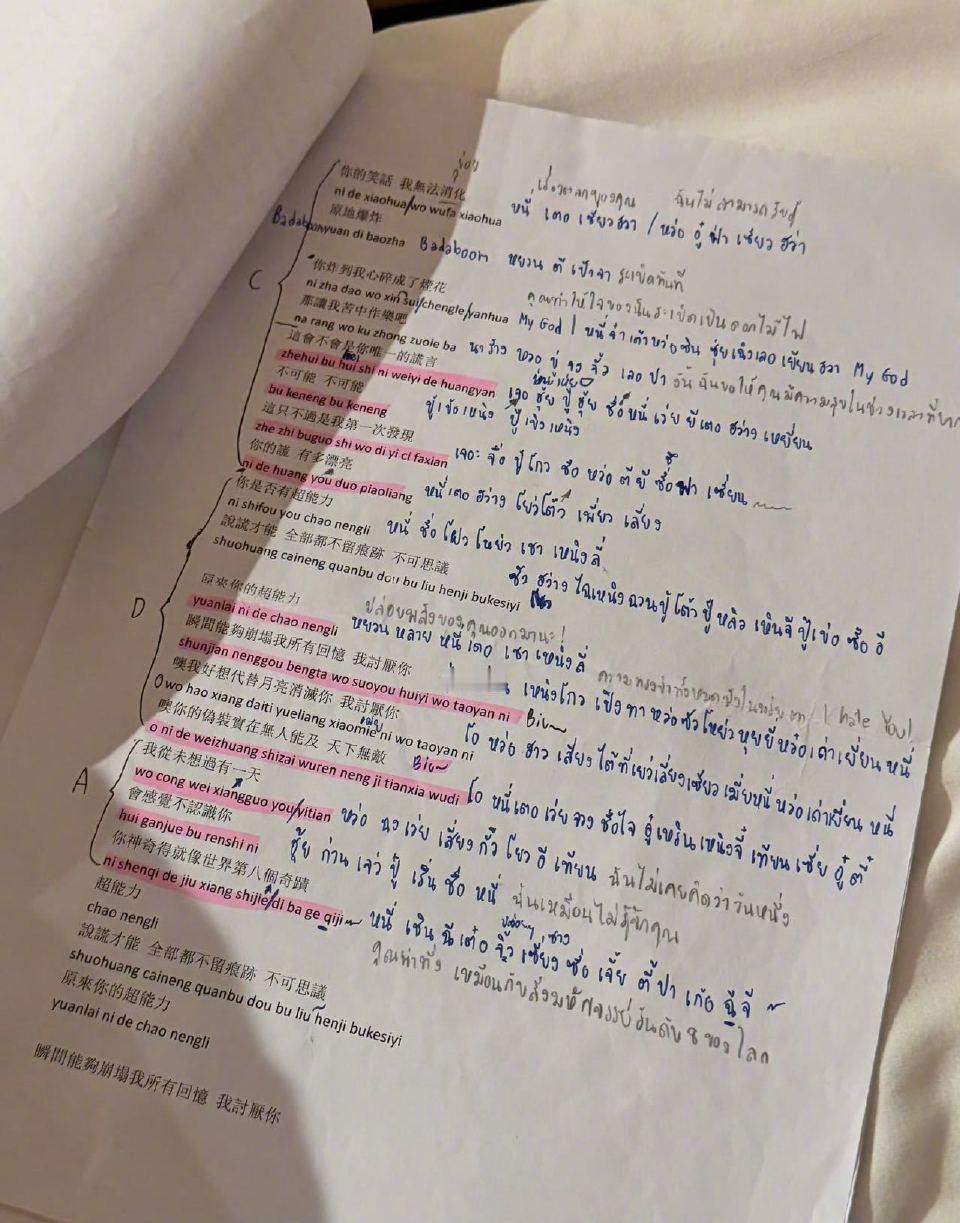 你的笑話 我無法消化
ย่อย
เรื่องตลกของคุณ ฉันไม่สามารถย่อยสู่
ni de xiaohua/wo wufa xiaohua หนี่ เตอ เซี่ยวฮวา / หว่อ อู๋ ฝ่า เซียว ฮว่า
原地爆炸
Badaboom yuan di baozha Badaboom หยวน ตี้ เป้าจา ระเบิดทันที
C
你炸到我心碎成了煙花
คุณทำให้ใจของฉันระเบิดเป็นดอกไม้ไฟ
ni zha dao wo xin sui/chengle/yanhua My God / หนี่จ้าเต้าหว่อซิน ซุ่ยเฉิงเลอ เยียนฮวา My God
那讓我苦中作樂吧
na rang wo ku zhong zuole ba น่า ร่าง หว่อ ขู่ จง จั้ว เลอ ปา งั้น ฉันขอให้คุณมีความสุขในช่วงเวลาที่ยาก
這會不會是你唯一的謊言
zhehui bu hui shi ni weiyi de huangyan เจอ ฮุ่ย ปู๋ ฮุ่ย ชื่อ หนี่ เว่ย ยีเตอ ฮว่าง เหยียน
不可能 不可能
bu keneng bu keneng ปู้เข่อเหนิง ปู้เข่อเหนิง
這只不過是我第一次發現
zhe zhi buguo shi wo di yi ci faxian เจอะ จื่อ ปู๋โกว ชื่อ หว่อ ตี้ ยี ชื่อ ฟา เซี่ยน
你的謊 有多漂亮
ni de huang you duo piaoliang หนี่เตอ ฮว่าง โหย่วโต๊ว เพี่ยว เลี่ยง
你是否有超能力
ni shifou you chao nengli หนี่ ชื่อ โฝว โหย่ว เชา เหนิงลี่
說謊才能 全部都不留痕跡 不可思議
shuohuang caineng quanbu dou bu liu henji bukesiyi ชัว ฮว่าง ไฉเหนิง ฉวนปู้ โต้ว ปู้ หลิว เหินจี ปู้เข่อ ซือ อี
D
原來你的超能力
ปล่อยพลังของคุณออกมานะ!
yuanlai ni de chao nengli หยวน หลาย หนี่ เตอ เชา เหนิ่งลี่
瞬間能夠崩塌我所有回憶 我討厭你
I hate You!
shunjian nenggou bengta wo suoyou huiyi wo taoyan ni เหนิงโกว เปิงทา หว่อซัวโหย่ว หุยยี หว่อ เถ่าเยี่ยน หนี่
噢我好想代替月亮消滅你 我討厭你 Biu~
O wo hao xiang daiti yueliang xiaomie ni wo taoyan ni โอ หว่อ ฮาว เสี่ยง ไต้ที่เยว่เลี่ยงเซียว เมี่ยหนี่ หว่อ เถ่าเยี่ยน หนี่
噢你的偽裝實在無人能及 天下無敵 Biu~
o ni de weizhuang shizai wuren neng ji tianxia wudi โอ หนี่เตอ เว่ยจวง ชื้อไจ อู๋เหริน เหนิงจี๋ เทียน เซี่ย อู๋ ตี๋
A
我從未想過有一天
wo cong wei xiangguo you/yitian หว่อ ฉง เว่ย เสี่ยง กั๊ว โยว อี เทียน ฉันไม่เคยคิดว่าวันหนึ่ง
會感覺不認識你
hui ganjue bu renshi ni ฮุ้ย ก่าน เจว๋ ปู้ เริ่น ชื่อ หนี่ ฉันเหมือนไม่รู้จักคุณ
你神奇得就像世界第八個奇蹟
ni shenqi de jiu xiang shijie/di ba ge qiji หนี่ เชิน ฉี เต๋อ จิ้ว เซี่ยง ชื่อ เจี้ย ตี้ ปา เก้อ ฉีจี
超能力
เหมือนกับสิ่งมหัศจรรย์อันดับ 8 ของโลก
chao nengli
說謊才能 全部都不留痕跡 不可思議
shuohuang caineng quanbu dou bu liu henji bukesiyi
原來你的超能力
yuanlai ni de chao nengli
瞬間能夠崩塌我所有回憶 我討厭你